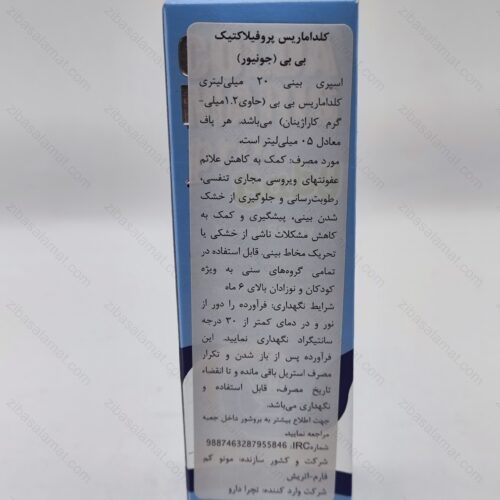 کلداماریس پروفیلاکتیک
بی بی (جونیور)
اسپری بینی ۲۰ میلی‌لیتری
کلداماریس بی بی (حاوی۱.۲میلی-
گرم کاراژینان) می‌باشد. هر پاف
معادل ۰۵ میلی‌لیتر است.
مورد مصرف: کمک به کاهش علائم
عفونتهای ویروسی مجاری تنفسی،
رطوبت‌رسانی و جلوگیری از خشک
شدن بینی، پیشگیری و کمک به
کاهش مشکلات ناشی از خشکی یا
تحریک مخاط بینی. قابل استفاده در
تمامی گروه‌های سنی به ویژه
کودکان و نوزادان بالای ۶ ماه
شرایط نگهداری: فرآورده را دور از
نور و در دمای کمتر از ۳۰ درجه
سانتیگراد نگهداری نمایید. این
فرآورده پس از باز شدن و تکرار
مصرف استریل باقی مانده و تا انقضاء
تاریخ مصرف، قابل استفاده و
نگهداری می‌باشد.
جهت اطلاع بیشتر به بروشور داخل جعبه
مراجعه نمایید.
شماره IRC: 9887463287955846
شرکت و کشور سازنده: مونو کم
فارم-اتریش
شرکت وارد کننده: نچرا دارو
zibasalamat.com